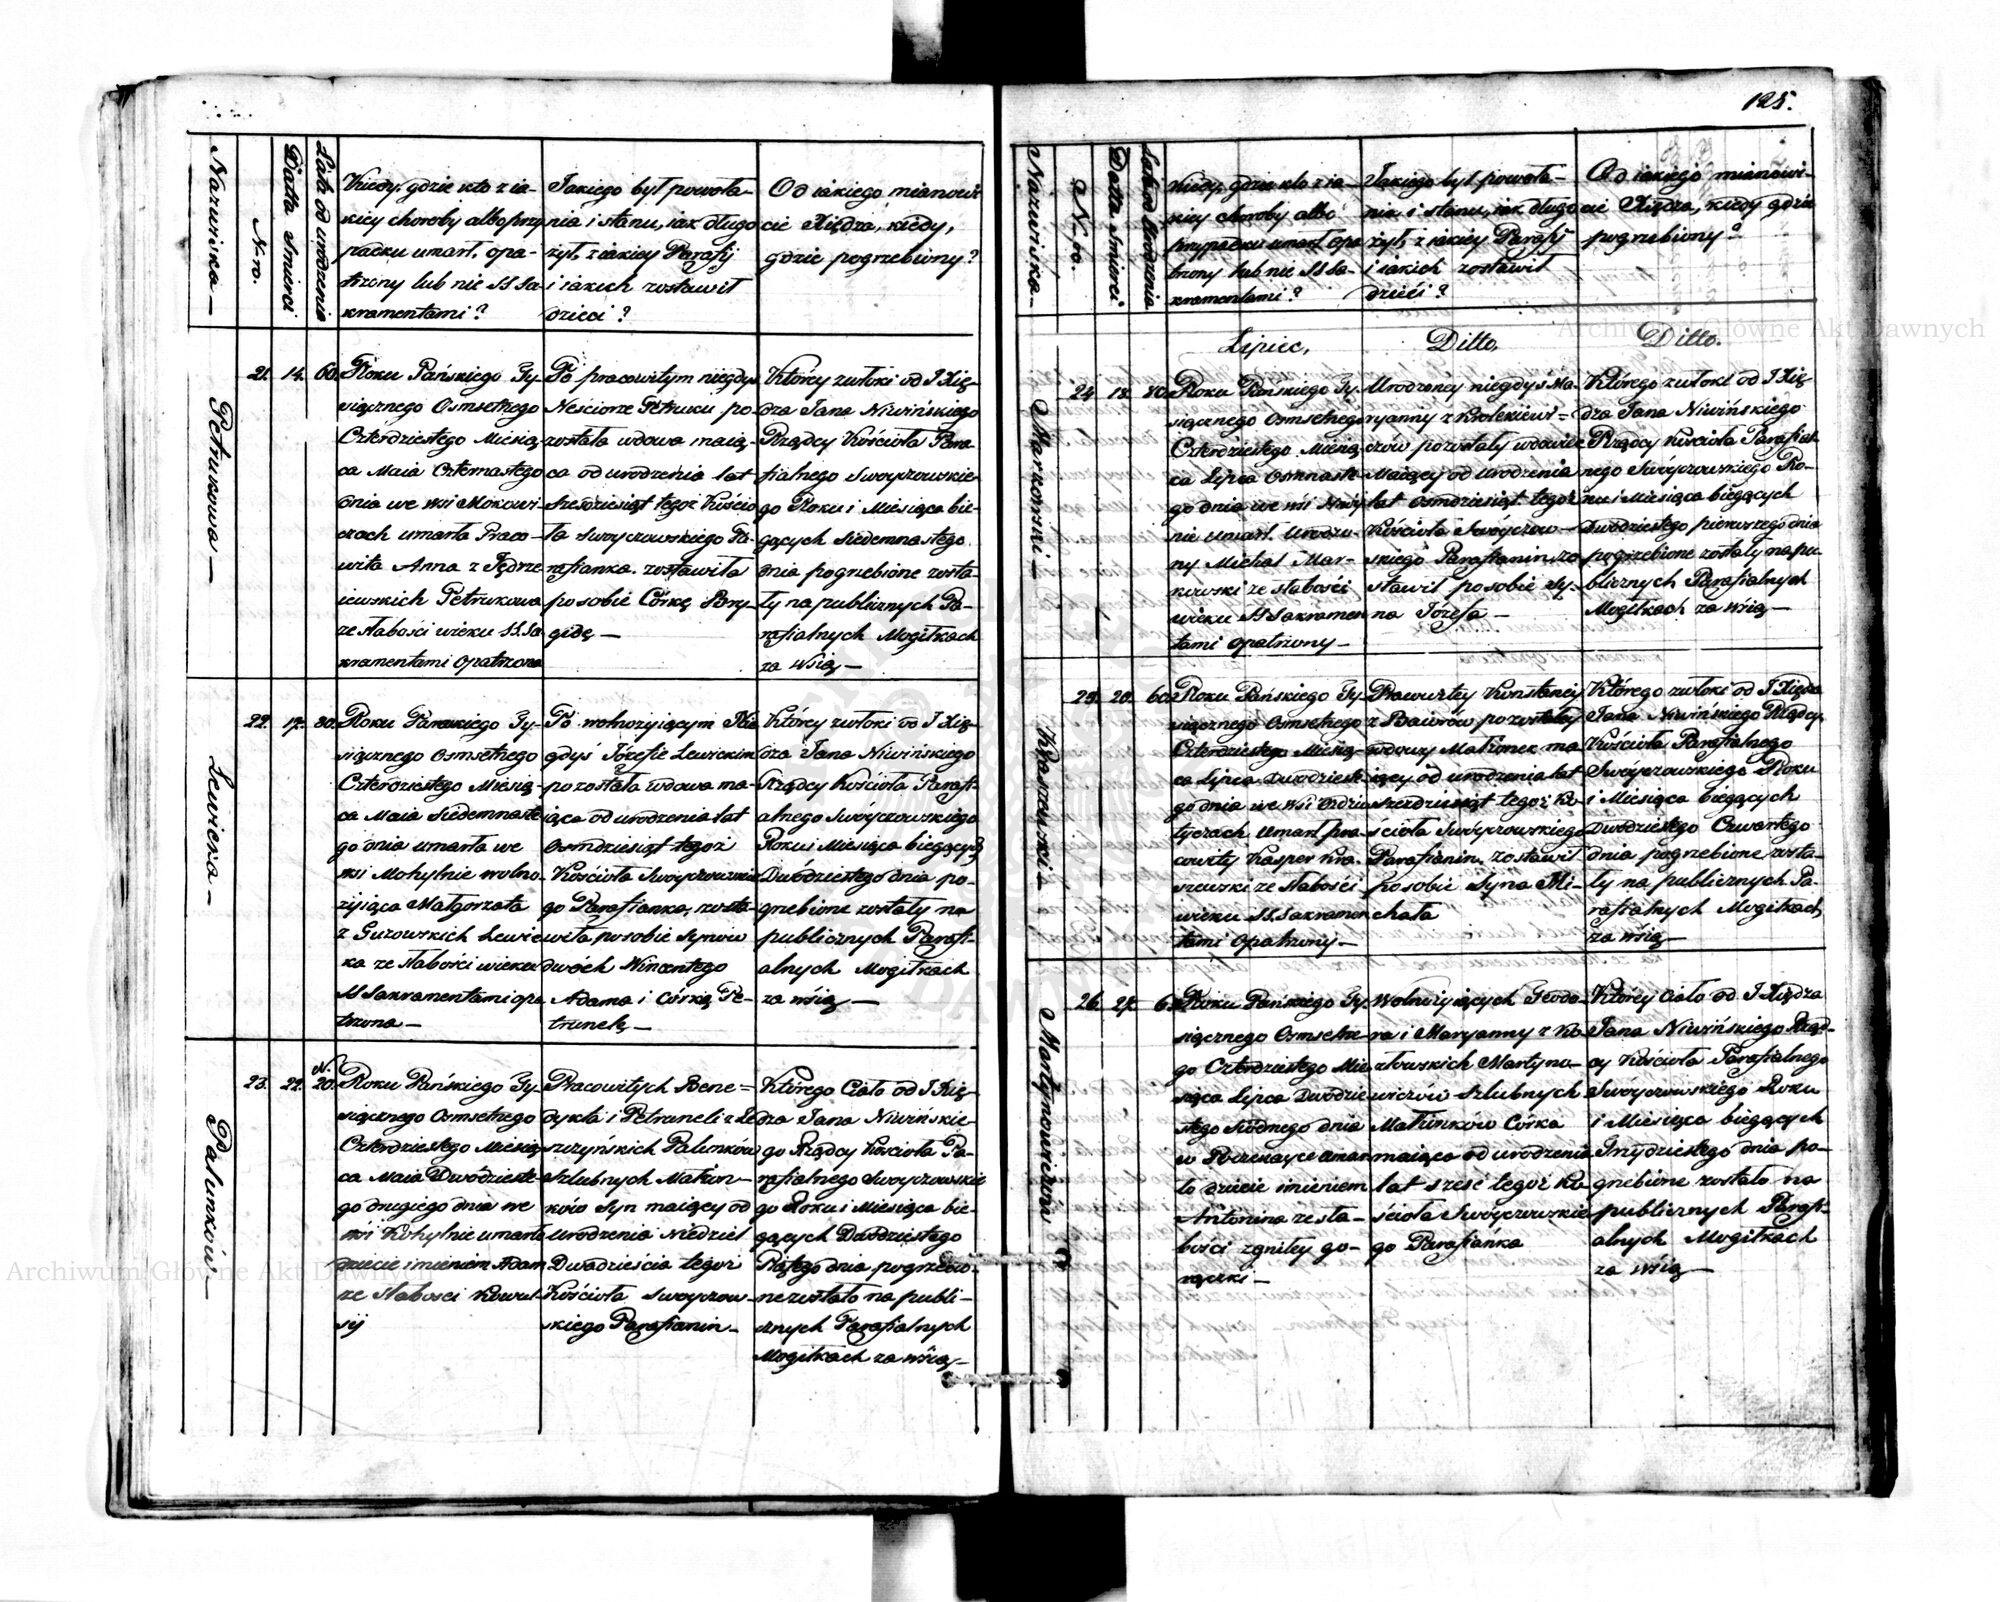 Nazwiska —
N-ro.
Datta Smierci
Lata od urodzenia
Kiedy, gdzie kto z ia-
kiey choroby albo przy
padku umarł, opa-
trzony lub nie SS. Sa-
kramentami?
Jakiego był powoła-
nia i stanu, iak długo
żył, z iakiey Parafij
i iakich zostawił
dzieci?
Od iakiego mianowi
cie Xiędza, kiedy,
gdzie pogrzebiony?
Petrukowa —
21.
14.
60.
Roku Pańskiego Ty-
siącznego Osmsetnego
Czterdziestego Miesią-
ca Maia Czternastego
dnia we wsi Mokowi-
czach umarła Praco-
wita Anna z Jędrze
iewskich Petrukowa
ze słabości wieku SS. Sa
kramentami opatrzona
Po pracowitym niegdyś
Nesciorze Petruku po-
została wdowa maią-
ca od urodzenia lat
sześdziesiąt tegoż Kościo
ła Swoyczowskiego Pa-
rafianka. zostawiła
po sobie Córkę Pary-
gidę —
Którey zwłoki od J. Xię-
dza Jana Niwińskiego
Rządcy Kościoła Para-
fialnego Swoyczowskie-
go Roku i Miesiąca bie-
gących Siedemnastego
dnia pogrzebione zosta-
ły na publicznych Pa-
rafialnych Mogiłkach
za wsią —
Lewicka —
22.
17.
80.
Roku Pańskiego Ty-
siącznego Osmsetnego
Czterdziestego Miesią-
ca Maia Siedemnaste
go dnia umarła we
wsi Mohylnie wolno-
żyiąca Małgorzata
z Gurowskich Lewic
ka ze słabości wieku
SS Sakramentami opa
trzona —
Po wolnożyiącym Nie
gdyś Józefie Lewickim
pozostała wdowa ma-
iąca od urodzenia lat
Osmdziesiąt tegoż
Kościoła Swoyczowskie
go Parafianka, zosta-
wiła po sobie Synów
dwóch Wincentego
Adama i Córkę Pe-
trunelę —
Którey zwłoki od J. Xię-
dza Jana Niwińskiego
Rządcy Kościoła Parafi-
alnego Swóyczowskiego
Roku i Miesiąca biegących
Dwódziestego dnia po-
grzebione zostały na
publicznych Parafi-
alnych Mogiłkach
za wsią —
Palunków —
23.
22.
N.
20.
Roku Pańskiego Ty-
siącznego Osmsetnego
Czterdziestego Miesią-
ca Maia Dwódzieste-
go drugiego dnia we
wsi Kohylnie umarło
dziecie imieniem Adam
ze słabosci Konwul-
sij
Pracowitych Bene=
dykta i Petruneli z Le
szczyńskich Palunków
szlubnych Małżon-
ków Syn maiący od
Urodzenia Niedziel
Dwadzieścia tegoż
Kościoła Swoyczow-
skiego Parafianin —
Którego Ciało od J. Xię-
dza Jana Niwińskie-
go Rządcy Kościoła Pa-
rafialnego Swoyczowskie
go Roku i Miesiąca bie-
gących Dwódziestego
Piątego dnia pogrzebio-
ne zostało na publi-
cznych Parafialnych
Mogiłkach za wsią —
125.
Nazwiska —
N-ro.
Datta Smierci
Lata od Urodzenia
Kiedy, gdzie kto z ia-
kiey choroby albo
przypadku umarł, opa
trzony lub nie SS. Sa-
kramentami?
Jakiego był powoła-
nia i stanu, iak długo
żył, z iakiey Parafij
i iakich zostawił
dzieci?
Od iakiego mianowi-
cie Xiędza, kiedy gdzie
pogrzebiony?
Lipiec,
Ditto,
Ditto.
Markowski —
24.
18.
80.
Roku Pańskiego Ty-
siącznego Osmsetnego
Czterdziestego Miesią
ca Lipca Osmnaste-
go dnia we wsi
nie umarł Urodzo-
ny Michał Mar-
kowski ze słabości
wieku SS Sakramen
tami opatrzony —
Urodzoney niegdyś Ma-
ryanny z Krolekiewi=
czów pozostały wdowiec
Maiący od Urodzenia
lat Osmdziesiąt tegoż
Kościoła Swóyczow-
skiego Parafianin, zo
stawił po sobie Sy-
na Jozefa —
Którego zwłoki od J Xię-
dza Jana Niwińskiego
Rządcy Kościoła Parafial-
nego Swóyczowskiego Ro-
ku i Miesiąca biegących
Dwodziestego pierwszego dnia
pogrzebione zostały na pu-
blicznych Parafialnych
Mogiłkach za wsią —
Kraszewski —
25.
20.
60.
Roku Pańskiego Ty-
siącznego Osmsetnego
Czterdziestego Miesią-
ca Lipca Dwodzieste
go dnia we wsi
umarł pra-
cowity Kasper Kra-
szewski ze słabości
wieku SS. Sakramen
tami opatrzony —
Pracowitey Konstancyi
z Baiorów pozostały
wdowy Małżonek ma
iący od urodzenia lat
sześdziesiąt tegoż Ko
ścioła Swóyczowskiego
Parafianin. zostawił
po sobie Syna Mi-
chała
Którego zwłoki od J Xiędza
Jana Niwińskiego Rządcy
Kościoła Parafialnego
Swóyczowskiego Roku
i Miesiąca biegących
Dwódziestego Czwartego
dnia pogrzebione zosta-
ły na publicznych Pa-
rafialnych Mogiłkach
za wsią —
Martynowiczów
26.
27.
6.
Roku Pańskiego Ty-
siącznego Osmsetne
go Czterdziestego Mie
siąca Lipca Dwódzie
stego siódmego dnia
w umar
ło dziecie imieniem
Antonina ze sła-
bości zgniłey go-
rączki —
Wolnożyiących Teodo-
ra i Maryanny z Ko
złowskich Martyno-
wiczów szlubnych
Małżonków Córka
maiąca od urodzenia
lat sześć tegoż Ko-
ścioła Swóyczowskie
go Parafianka
Którey Ciało od J. Xiędza
Jana Niwińskiego Rząd-
cy Kościoła Parafialnego
Swoyczowskiego Roku
i Miesiąca biegących
Trzydziestego dnia po-
grzebione zostało na
publicznych Parafi-
alnych Mogiłkach
za wsią —
Archiwum Główne Akt Dawnych
Archiwum Główne Akt Dawnych